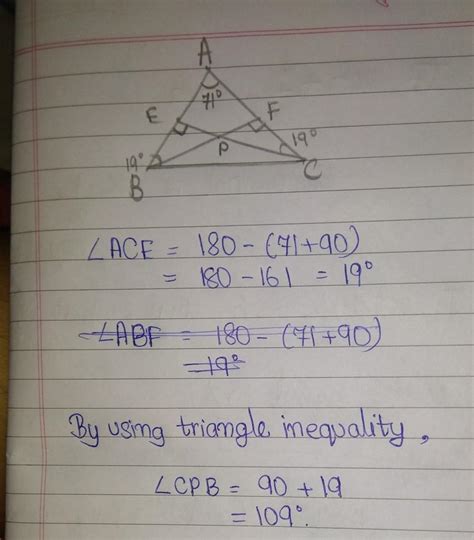 A
71°
E F
19°
P
19°
B C
∠ACE = 180 - (71+90)
= 180 - 161 = 19°
∠ABF = 180 - (71+90)
= 19°
By using triangle inequality,
∠CPB = 90 + 19
= 109°.